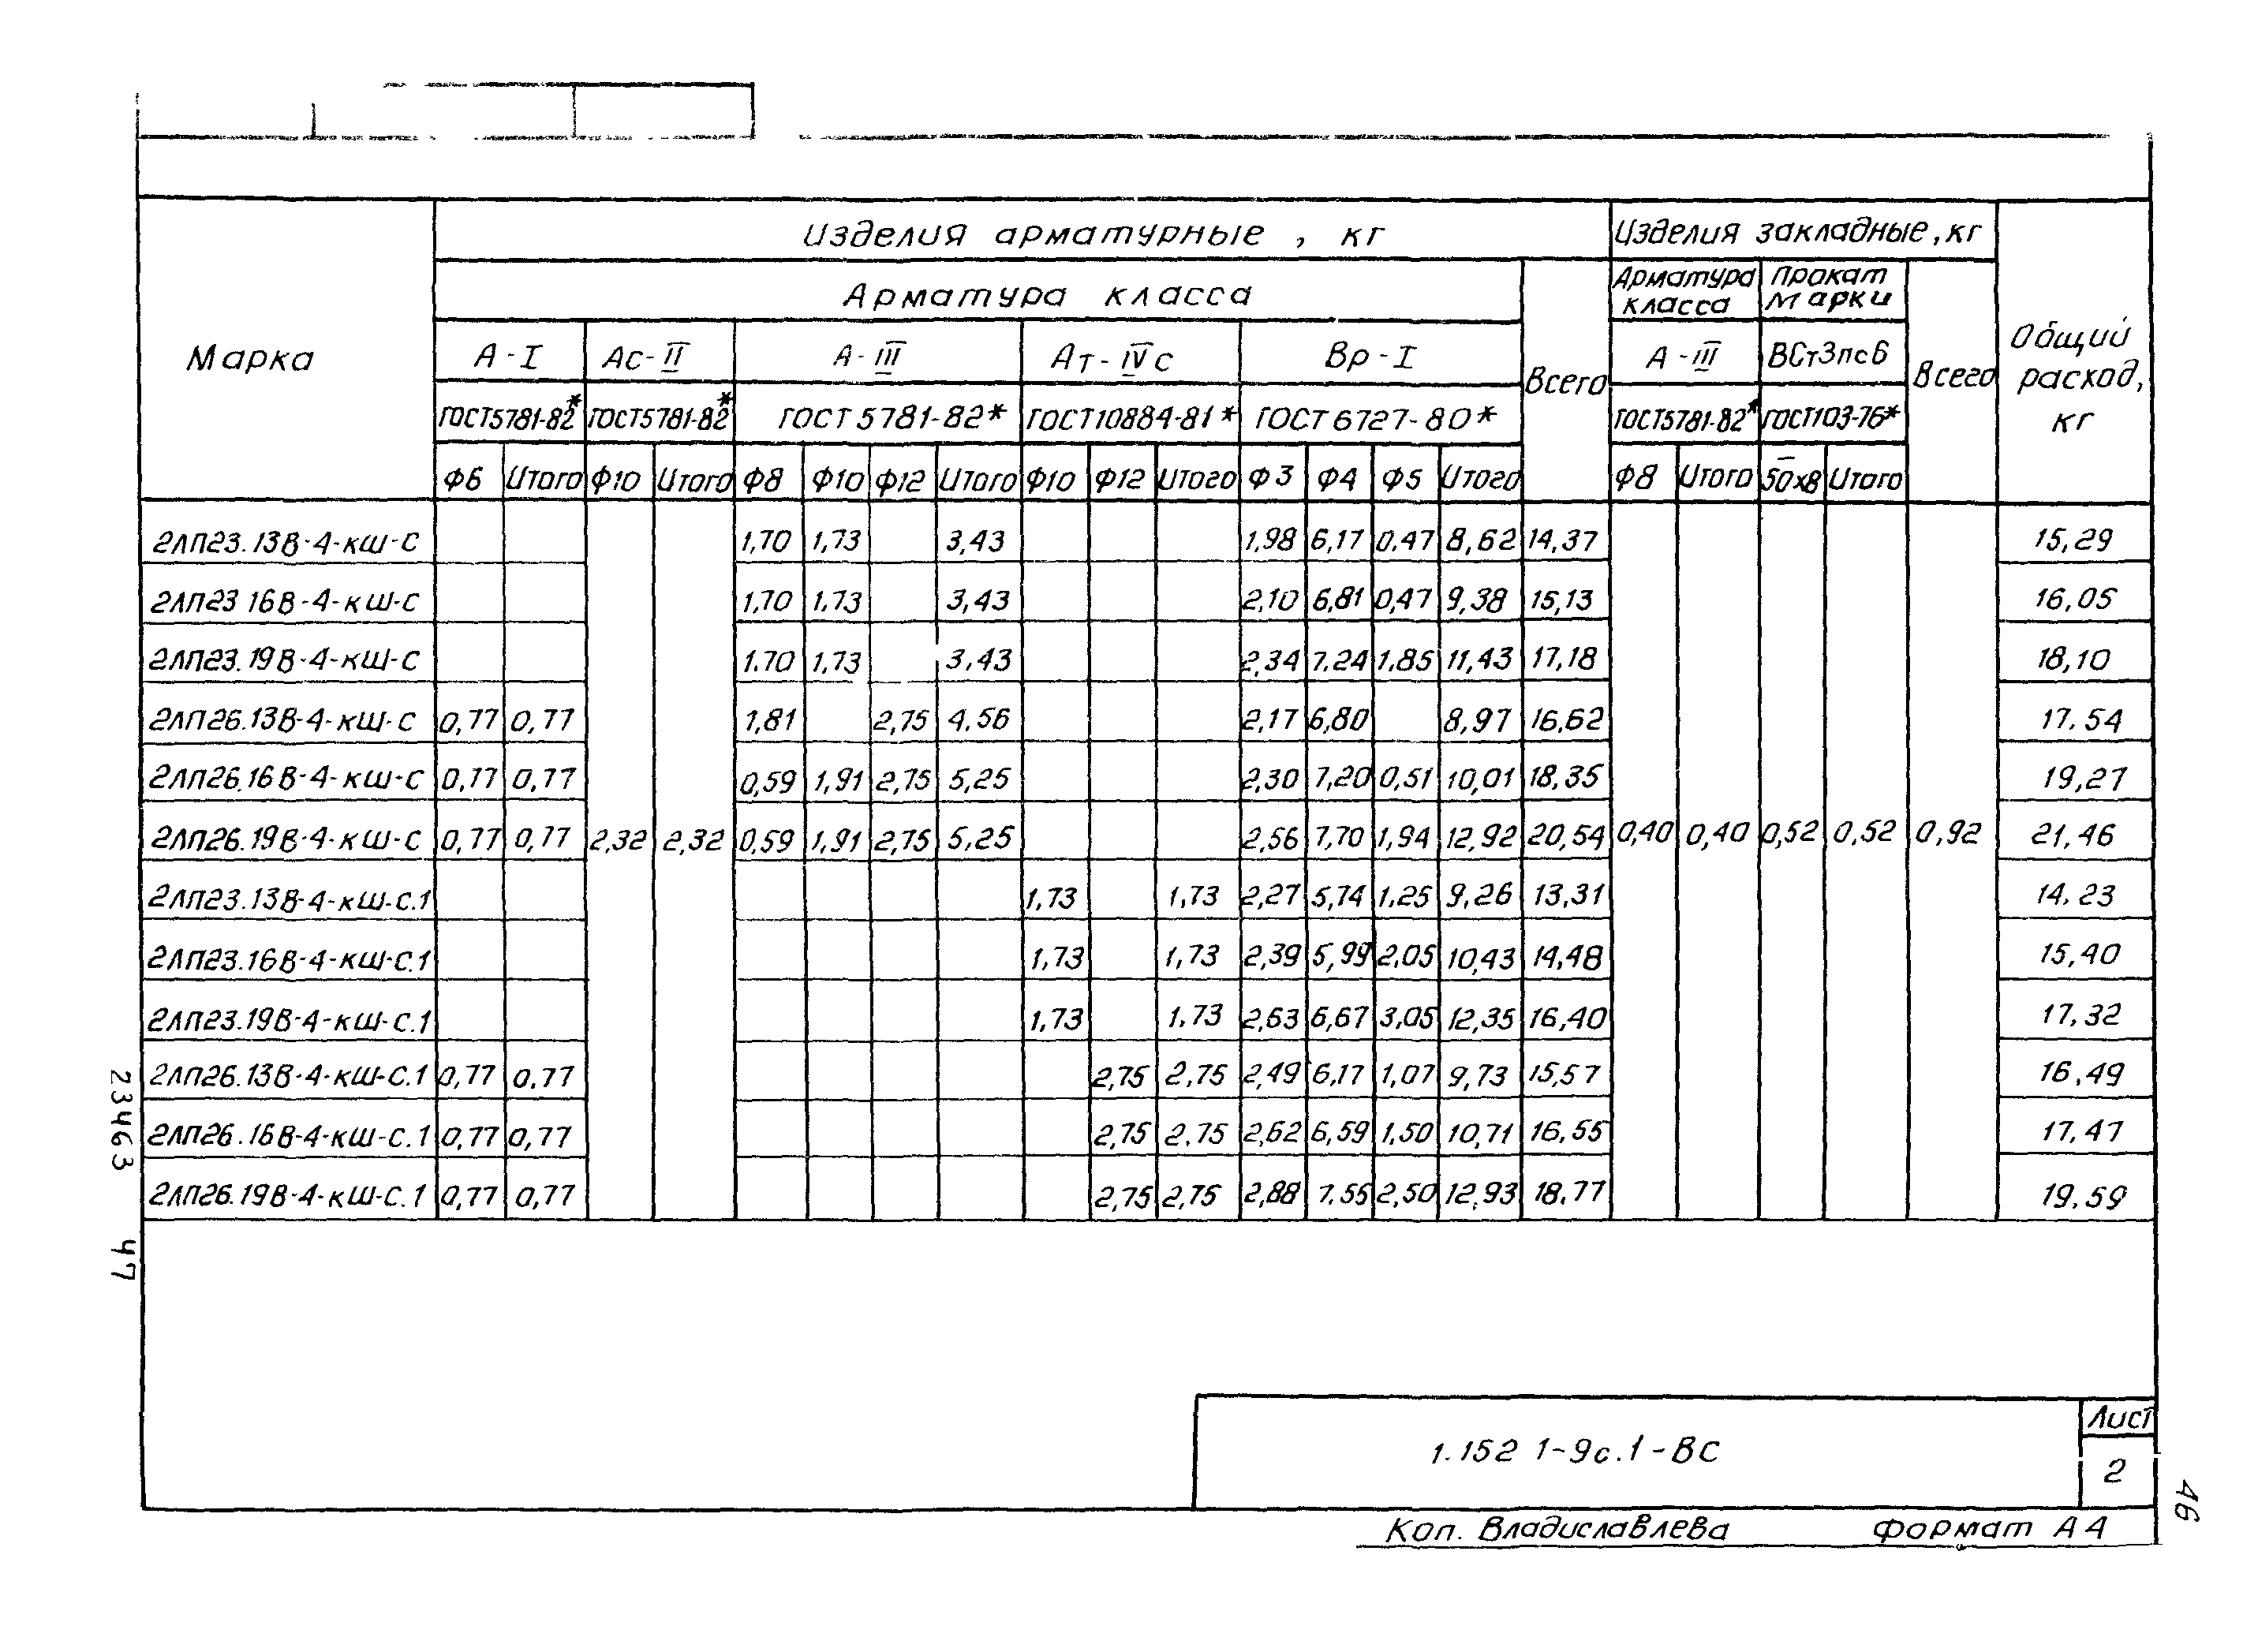 Изделия арматурные, кг Изделия закладные, кг
Арматура класса Арматура класса Прокат марки
Марка А-I Ас-II А-III Ат-IVс Вр-I Всего А-III ВСт3пс6 Всего Общий расход, кг
ГОСТ5781-82* ГОСТ5781-82* ГОСТ 5781-82* ГОСТ10884-81* ГОСТ 6727-80* ГОСТ5781-82* ГОСТ103-76*
Ф6 Итого Ф10 Итого Ф8 Ф10 Ф12 Итого Ф10 Ф12 Итого Ф3 Ф4 Ф5 Итого Ф8 Итого 50х8 Итого
2ЛП23.13В-4-кш-С 1,70 1,73 3,43 1,98 6,17 0,47 8,62 14,37 15,29
2ЛП23 16В-4-кш-С 1,70 1,73 3,43 2,10 6,81 0,47 9,38 15,13 16,05
2ЛП23.19В-4-кш-С 1.70 1,73 3,43 2,34 7,24 1,85 11,43 17,18 18,10
2ЛП26.13В-4-кш-С 0,77 0,77 1,81 2,75 4,56 2,17 6,80 8,97 16,62 17,54
2ЛП26.16В-4-кш-С 0,77 0,77 0,59 1,91 2,75 5,25 2,30 7,20 0,51 10,01 18,35 19,27
2ЛП26.19В-4-кш-С 0,77 0,77 2,32 2,32 0,59 1,91 2,75 5,25 2,56 7,70 1,94 12,92 20,54 0,40 0,40 0,52 0,52 0,92 21,46
2ЛП23.13В-4-кш-С.1 1,73 1,73 2,27 5,74 1,25 9,26 13,31 14,23
2ЛП23.16В-4-кш-С.1 1,73 1,73 2,39 5,99 2,05 10,43 14,48 15,40
2ЛП23.19В-4-кш-С.1 1,73 1,73 2,63 6,67 3,05 12,35 16,40 17,32
2ЛП26.13В-4-кш-С.1 0,77 0,77 2,75 2,75 2,49 6,17 1,07 9,73 15,57 16,49
2ЛП26.16В-4-кш-С.1 0,77 0,77 2,75 2,75 2,62 6,59 1,50 10,71 16,55 17,47
2ЛП26.19В-4-кш-С.1 0,77 0,77 2,75 2,75 2,88 7,55 2,50 12,93 18,77 19,59
23463 47
1.152 1-9с.1-ВС
Лист
2
46
Коп. Владиславлева Формат А4